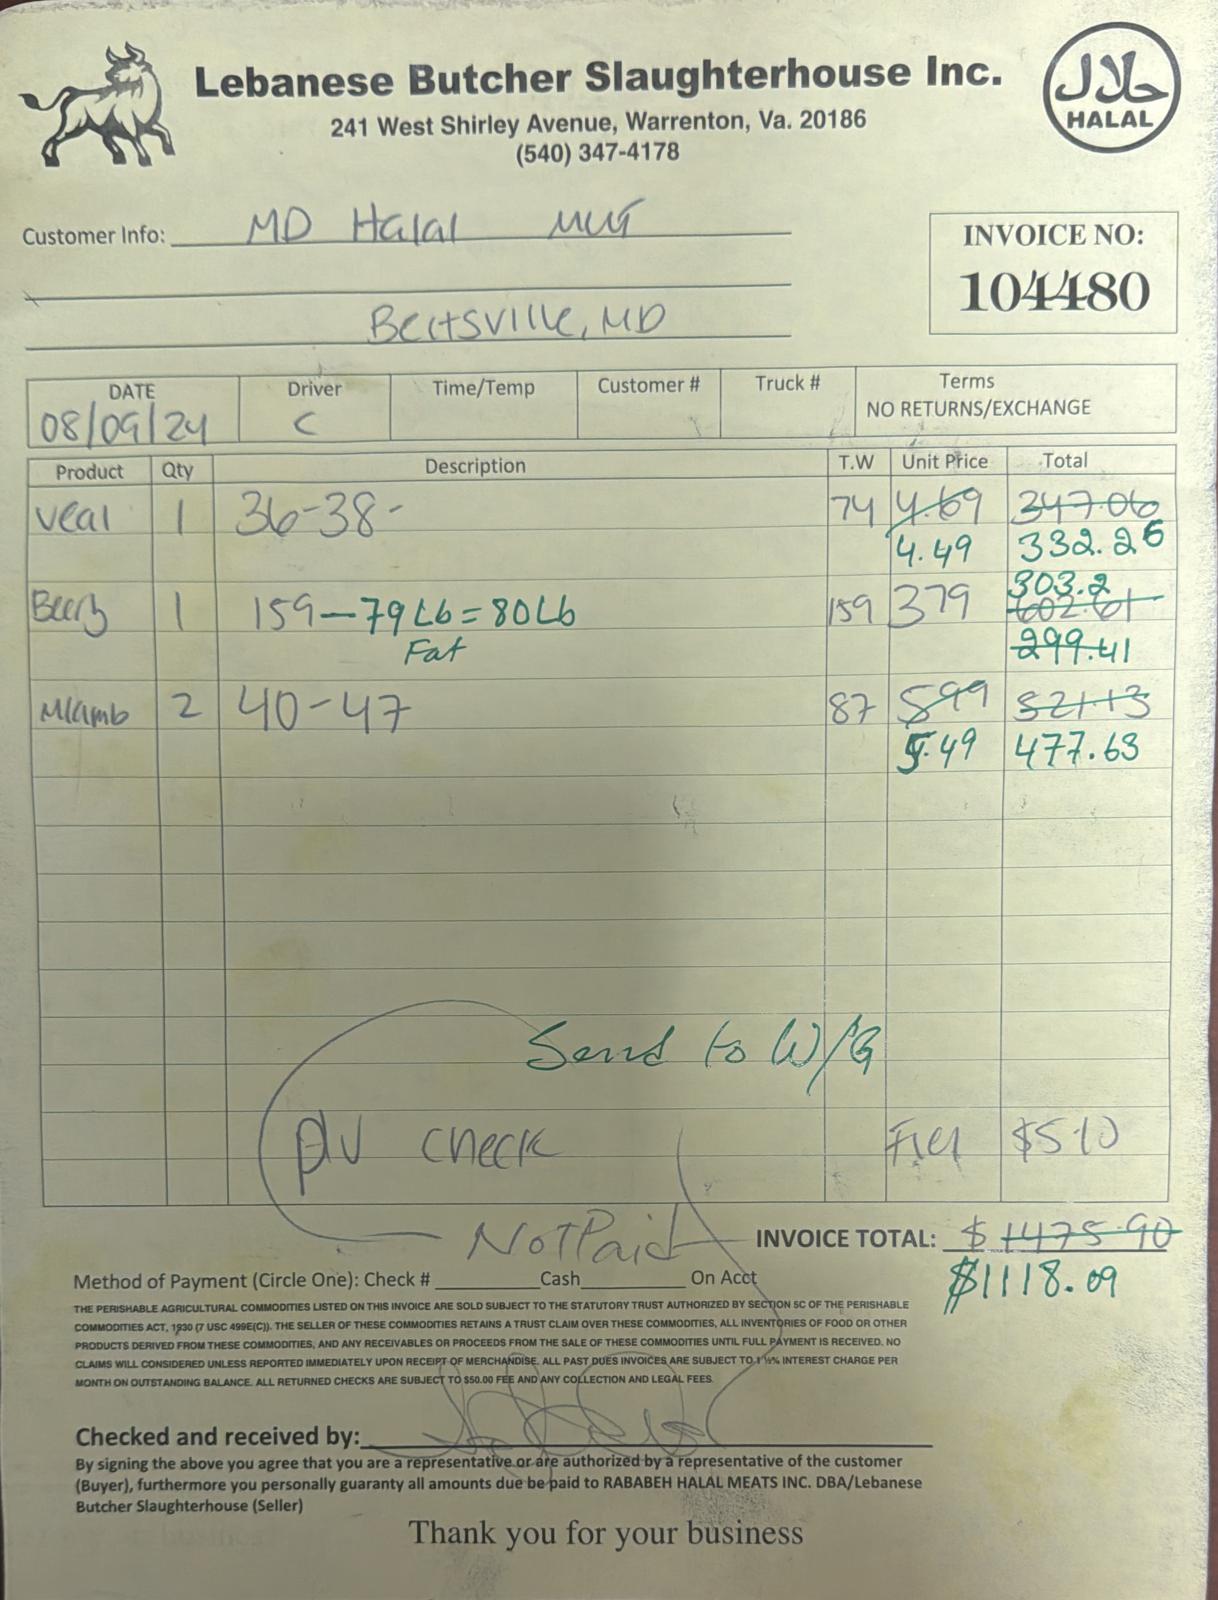 Lebanese Butcher Slaughterhouse Inc.
حلال
HALAL
241 West Shirley Avenue, Warrenton, Va. 20186
(540) 347-4178
Customer Info: MD Halal
INVOICE NO:
104480
Beltsville, MD
DATE Driver Time/Temp Customer # Truck # Terms
08/09/24 C NO RETURNS/EXCHANGE
Product Qty Description T.W Unit Price Total
Veal 1 36-38- 74 4.69 347.06
4.49 332.26
303.2
1 159-79Lb=80Lb 159 379 602.61
Fat 299.41
Mlamb 2 40-47 87 599 521.13
5.49 477.63
Send to W/G
check $510
Not Paid
INVOICE TOTAL: $ 1475.90
$1118.09
Method of Payment (Circle One): Check # Cash On Acct
THE PERISHABLE AGRICULTURAL COMMODITIES LISTED ON THIS INVOICE ARE SOLD SUBJECT TO THE STATUTORY TRUST AUTHORIZED BY SECTION 5C OF THE PERISHABLE
COMMODITIES ACT, 1930 (7 USC 499E(C)). THE SELLER OF THESE COMMODITIES RETAINS A TRUST CLAIM OVER THESE COMMODITIES, ALL INVENTORIES OF FOOD OR OTHER
PRODUCTS DERIVED FROM THESE COMMODITIES, AND ANY RECEIVABLES OR PROCEEDS FROM THE SALE OF THESE COMMODITIES UNTIL FULL PAYMENT IS RECEIVED. NO
CLAIMS WILL CONSIDERED UNLESS REPORTED IMMEDIATELY UPON RECEIPT OF MERCHANDISE. ALL PAST DUES INVOICES ARE SUBJECT TO 1 ½% INTEREST CHARGE PER
MONTH ON OUTSTANDING BALANCE. ALL RETURNED CHECKS ARE SUBJECT TO $50.00 FEE AND ANY COLLECTION AND LEGAL FEES.
Checked and received by:
By signing the above you agree that you are a representative or are authorized by a representative of the customer
(Buyer), furthermore you personally guaranty all amounts due be paid to RABABEH HALAL MEATS INC. DBA/Lebanese
Butcher Slaughterhouse (Seller)
Thank you for your business